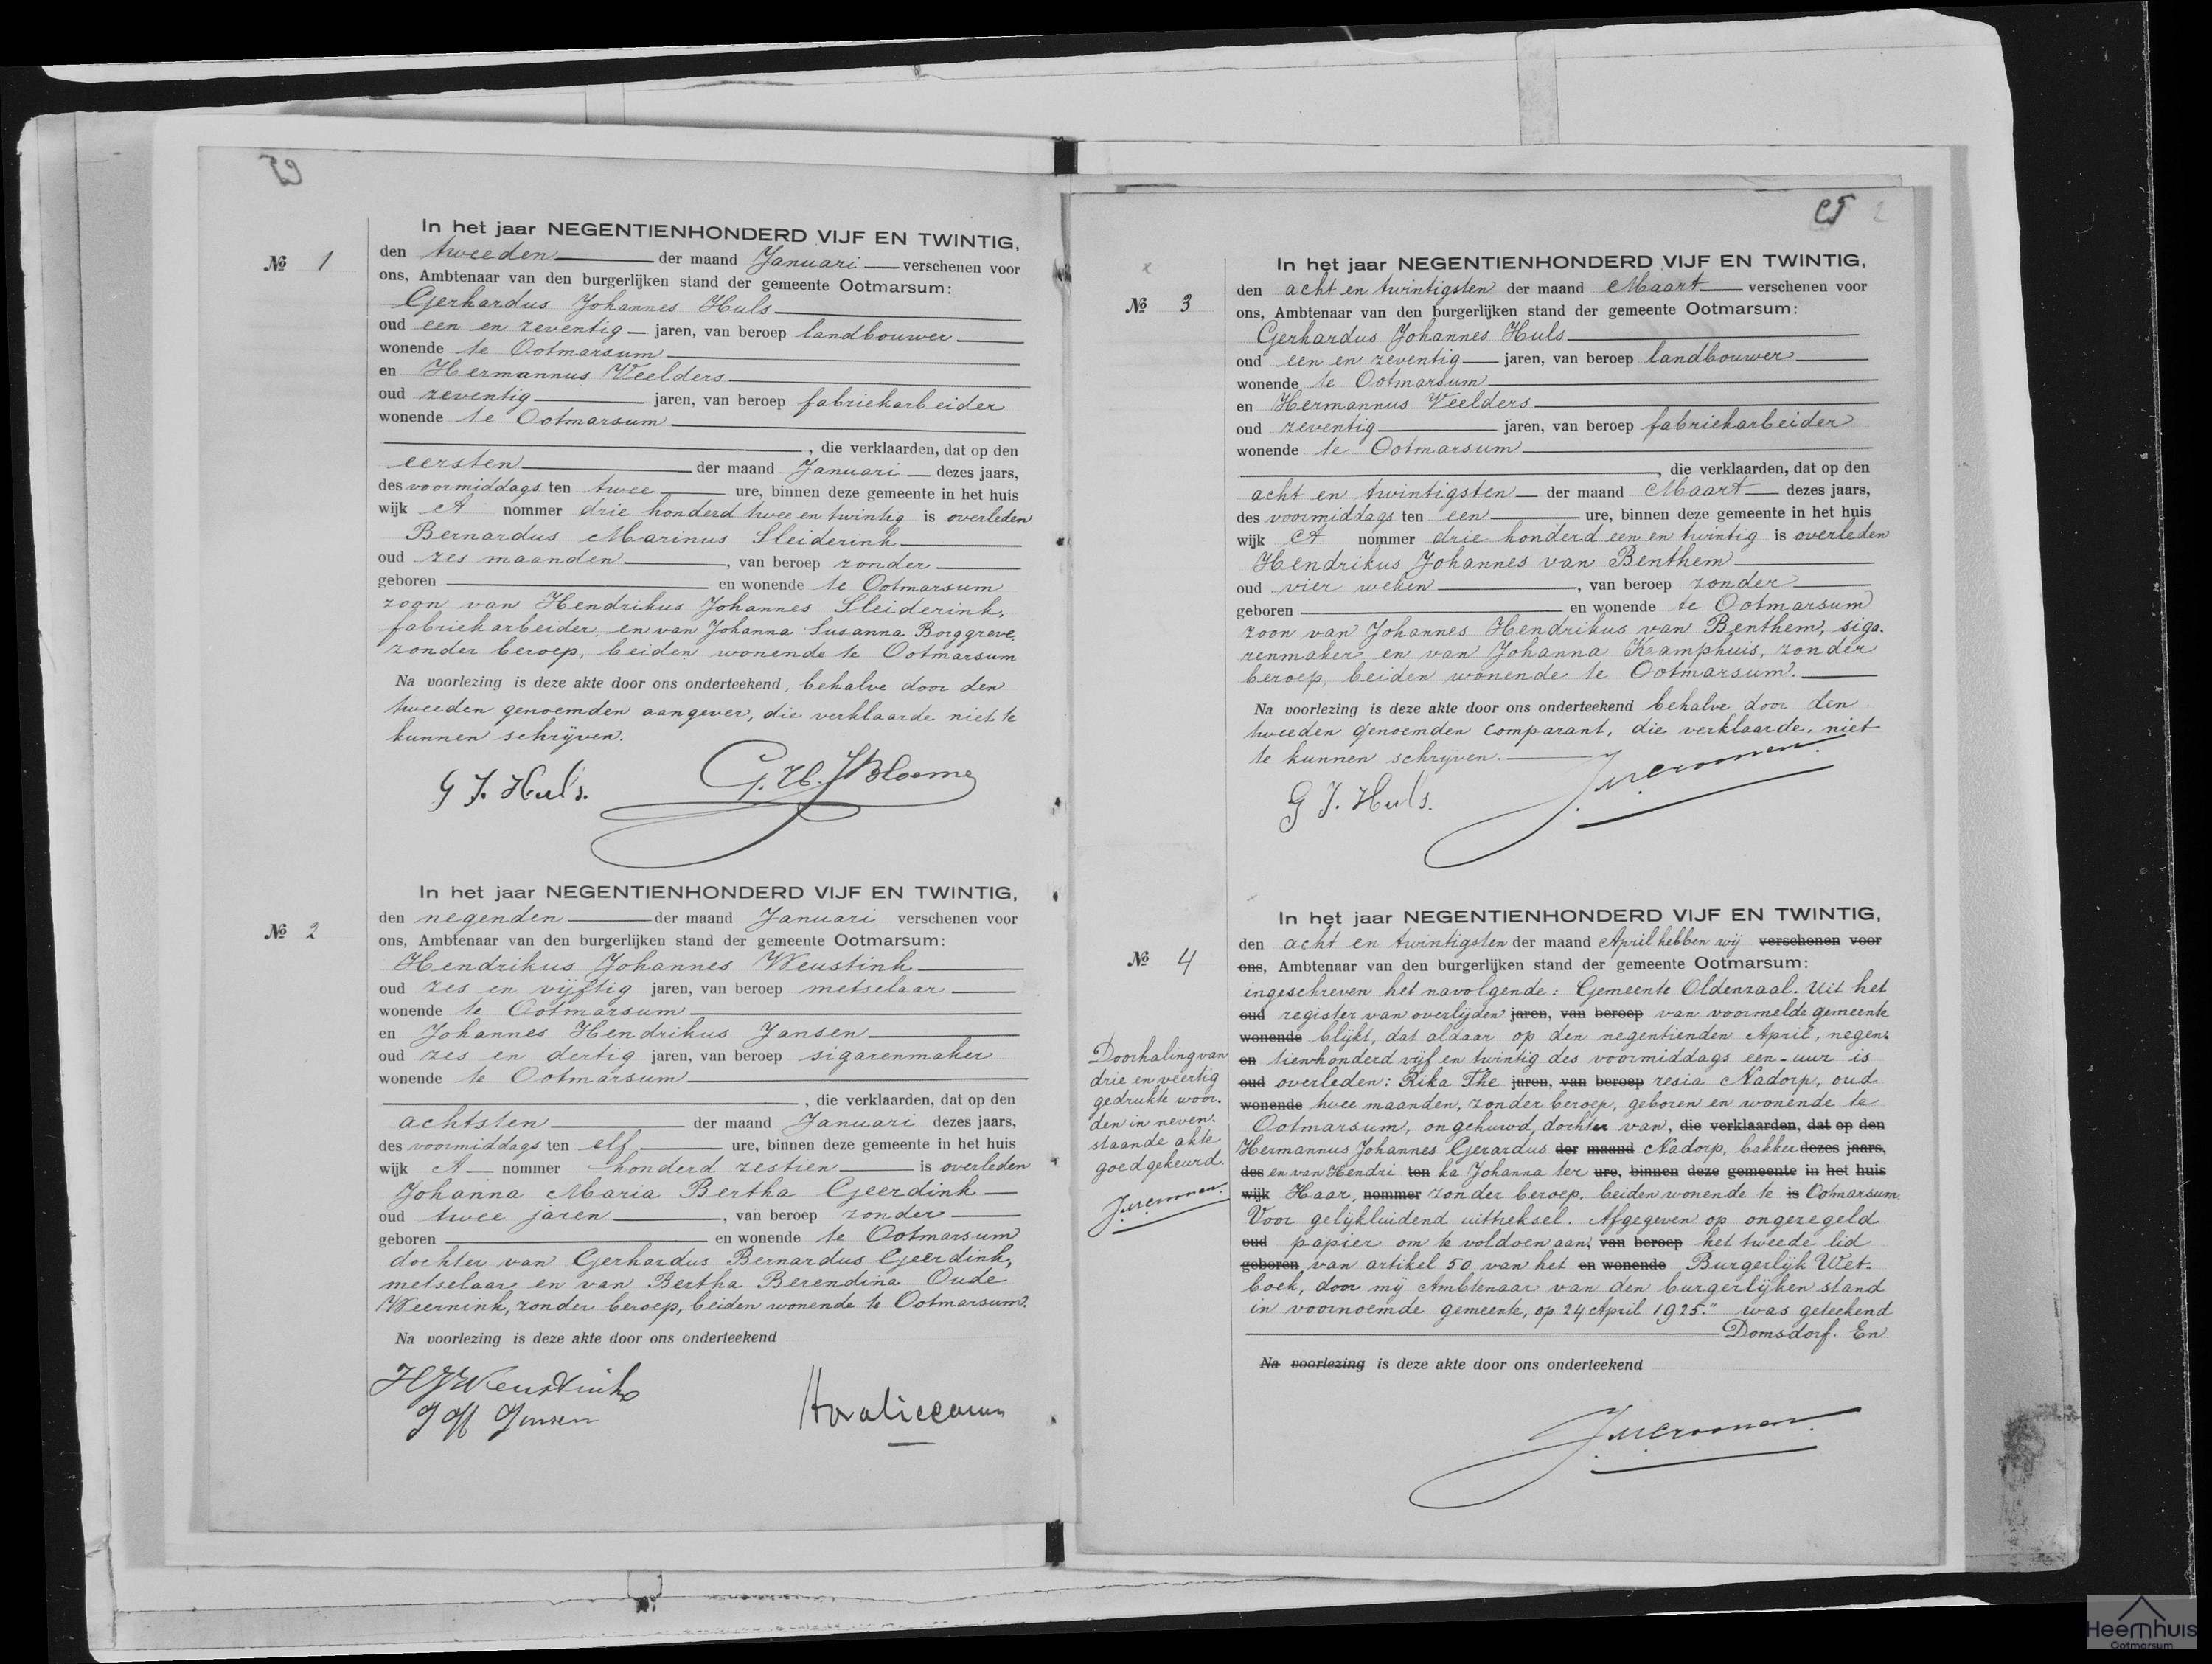 № 1
In het jaar NEGENTIENHONDERD VIJF EN TWINTIG,
den tweeden der maand Januari verschenen voor
ons, Ambtenaar van den burgerlijken stand der gemeente Ootmarsum:
Gerhardus Johannes Huls
oud een en zeventig jaren, van beroep landbouwer
wonende te Ootmarsum
en Hermannus Veelders
oud zeventig jaren, van beroep fabriekarbeider
wonende te Ootmarsum
, die verklaarden, dat op den
eersten der maand Januari dezes jaars,
des voormiddags ten twee ure, binnen deze gemeente in het huis
wijk A nommer drie honderd twee en twintig is overleden
Bernardus Marinus Sleiderink
oud zes maanden, van beroep zonder
geboren en wonende te Ootmarsum
zoon van Hendrikus Johannes Sleiderink,
fabriekarbeider, en van Johanna Susanna Borggreve,
zonder beroep, beiden wonende te Ootmarsum
Na voorlezing is deze akte door ons onderteekend, behalve door den
tweeden genoemden aangever, die verklaarde niet te
kunnen schrijven.
G J. Huls. G. H. J Bloeme
№ 2
In het jaar NEGENTIENHONDERD VIJF EN TWINTIG,
den negenden der maand Januari verschenen voor
ons, Ambtenaar van den burgerlijken stand der gemeente Ootmarsum:
Hendrikus Johannes Weustink
oud zes en vijftig jaren, van beroep metselaar
wonende te Ootmarsum
en Johannes Hendrikus Jansen
oud zes en dertig jaren, van beroep sigarenmaker
wonende te Ootmarsum
, die verklaarden, dat op den
achtsten der maand Januari dezes jaars,
des voormiddags ten elf ure, binnen deze gemeente in het huis
wijk A nommer honderd zestien is overleden
Johanna Maria Bertha Geerdink
oud twee jaren, van beroep zonder
geboren en wonende te Ootmarsum
dochter van Gerhardus Bernardus Geerdink,
metselaar en van Bertha Berendina Oude
Weernink, zonder beroep, beiden wonende te Ootmarsum.
Na voorlezing is deze akte door ons onderteekend
HJWeustink
J H Jansen
№ 3
In het jaar NEGENTIENHONDERD VIJF EN TWINTIG,
den acht en twintigsten der maand Maart verschenen voor
ons, Ambtenaar van den burgerlijken stand der gemeente Ootmarsum:
Gerhardus Johannes Huls
oud een en zeventig jaren, van beroep landbouwer
wonende te Ootmarsum
en Hermannus Veelders
oud zeventig jaren, van beroep fabriekarbeider
wonende te Ootmarsum
, die verklaarden, dat op den
acht en twintigsten der maand Maart dezes jaars,
des voormiddags ten een ure, binnen deze gemeente in het huis
wijk A nommer drie honderd een en twintig is overleden
Hendrikus Johannes van Benthem
oud vier weken, van beroep zonder
geboren en wonende te Ootmarsum
zoon van Johannes Hendrikus van Benthem, siga-
renmaker en van Johanna Kamphuis, zonder
beroep, beiden wonende te Ootmarsum.
Na voorlezing is deze akte door ons onderteekend behalve door den
tweeden genoemden comparant, die verklaarde, niet
te kunnen schrijven.
G J. Huls.
№ 4
In het jaar NEGENTIENHONDERD VIJF EN TWINTIG,
den acht en twintigsten der maand April hebben wij verschenen voor
ons, Ambtenaar van den burgerlijken stand der gemeente Ootmarsum:
ingeschreven het navolgende: Gemeente Oldenzaal. Uit het
oud register van overlijden jaren, van beroep van voormelde gemeente
wonende blijkt, dat aldaar op den negentienden April, negen-
en tienhonderd vijf en twintig des voormiddags een-uur is
oud overleden: Rika The jaren, van beroep resia Nadorp, oud
wonende twee maanden, zonder beroep, geboren en wonende te
Ootmarsum, ongehuwd, dochter van, die verklaarden, dat op den
Hermannus Johannes Gerardus der maand Nadorp, bakker dezes jaars,
des en van Hendri ten ka Johanna ter ure, binnen deze gemeente in het huis
wijk Haar, nommer zonder beroep, beiden wonende te is Ootmarsum.
Voor gelijkluidend uittreksel. Afgegeven op ongezegeld
oud papier om te voldoen aan, van beroep het tweede lid
geboren van artikel 50 van het en wonende Burgerlijk Wet-
boek, door mij Ambtenaar van den burgerlijken stand
in voornoemde gemeente, op 24 April 1925." was geteekend
Domsdorf. En
Na voorlezing is deze akte door ons onderteekend
Doorhaling van
drie en veertig
gedrukte woor-
den in neven-
staande akte
goedgekeurd.
Heemhuis
Ootmarsum